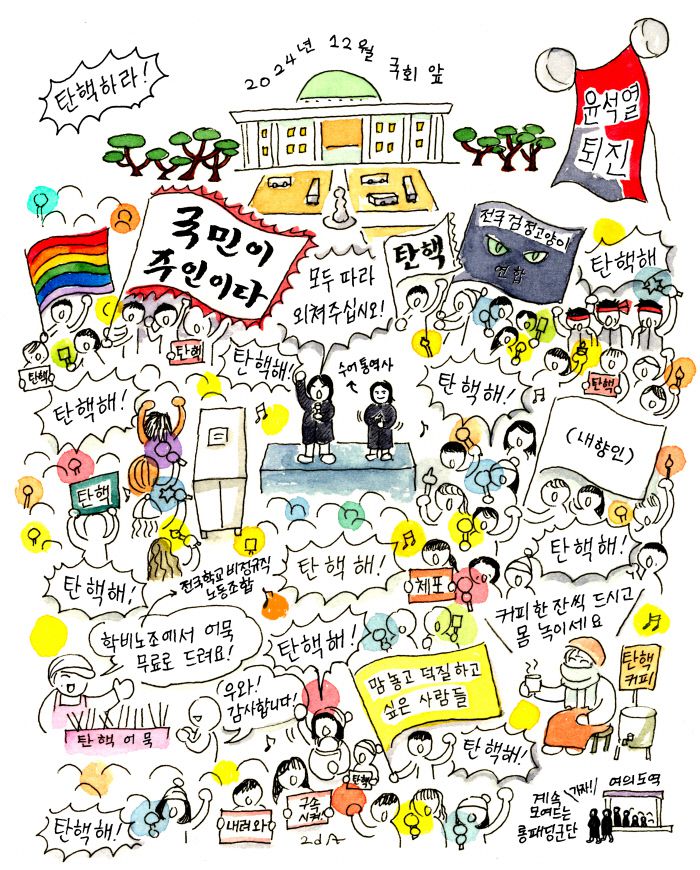 2024년 12월 국회 앞
탄핵하라!
윤석열
퇴진
국민이
주인이다
모두 따라
외쳐주십시오!
탄핵
전국 검정고양이
연합
탄핵해
탄핵
탄핵
탄핵해!
수어통역사
탄핵해!
탄핵
탄핵해!
(내향인)
탄핵
탄핵해!
전국학교비정규직
노동조합
탄핵해!
체포
탄핵해!
학비노조에서 어묵
무료로 드려요!
탄핵해!
커피 한 잔씩 드시고
몸 녹이세요
탄핵 어묵
우와!
감사합니다!
맘 놓고 덕질하고
싶은 사람들
탄핵
커피
탄핵해!
탄핵
탄핵해!
내려와
구속
시켜
계속
모여드는
롱패딩군단
가자!!
여의도역